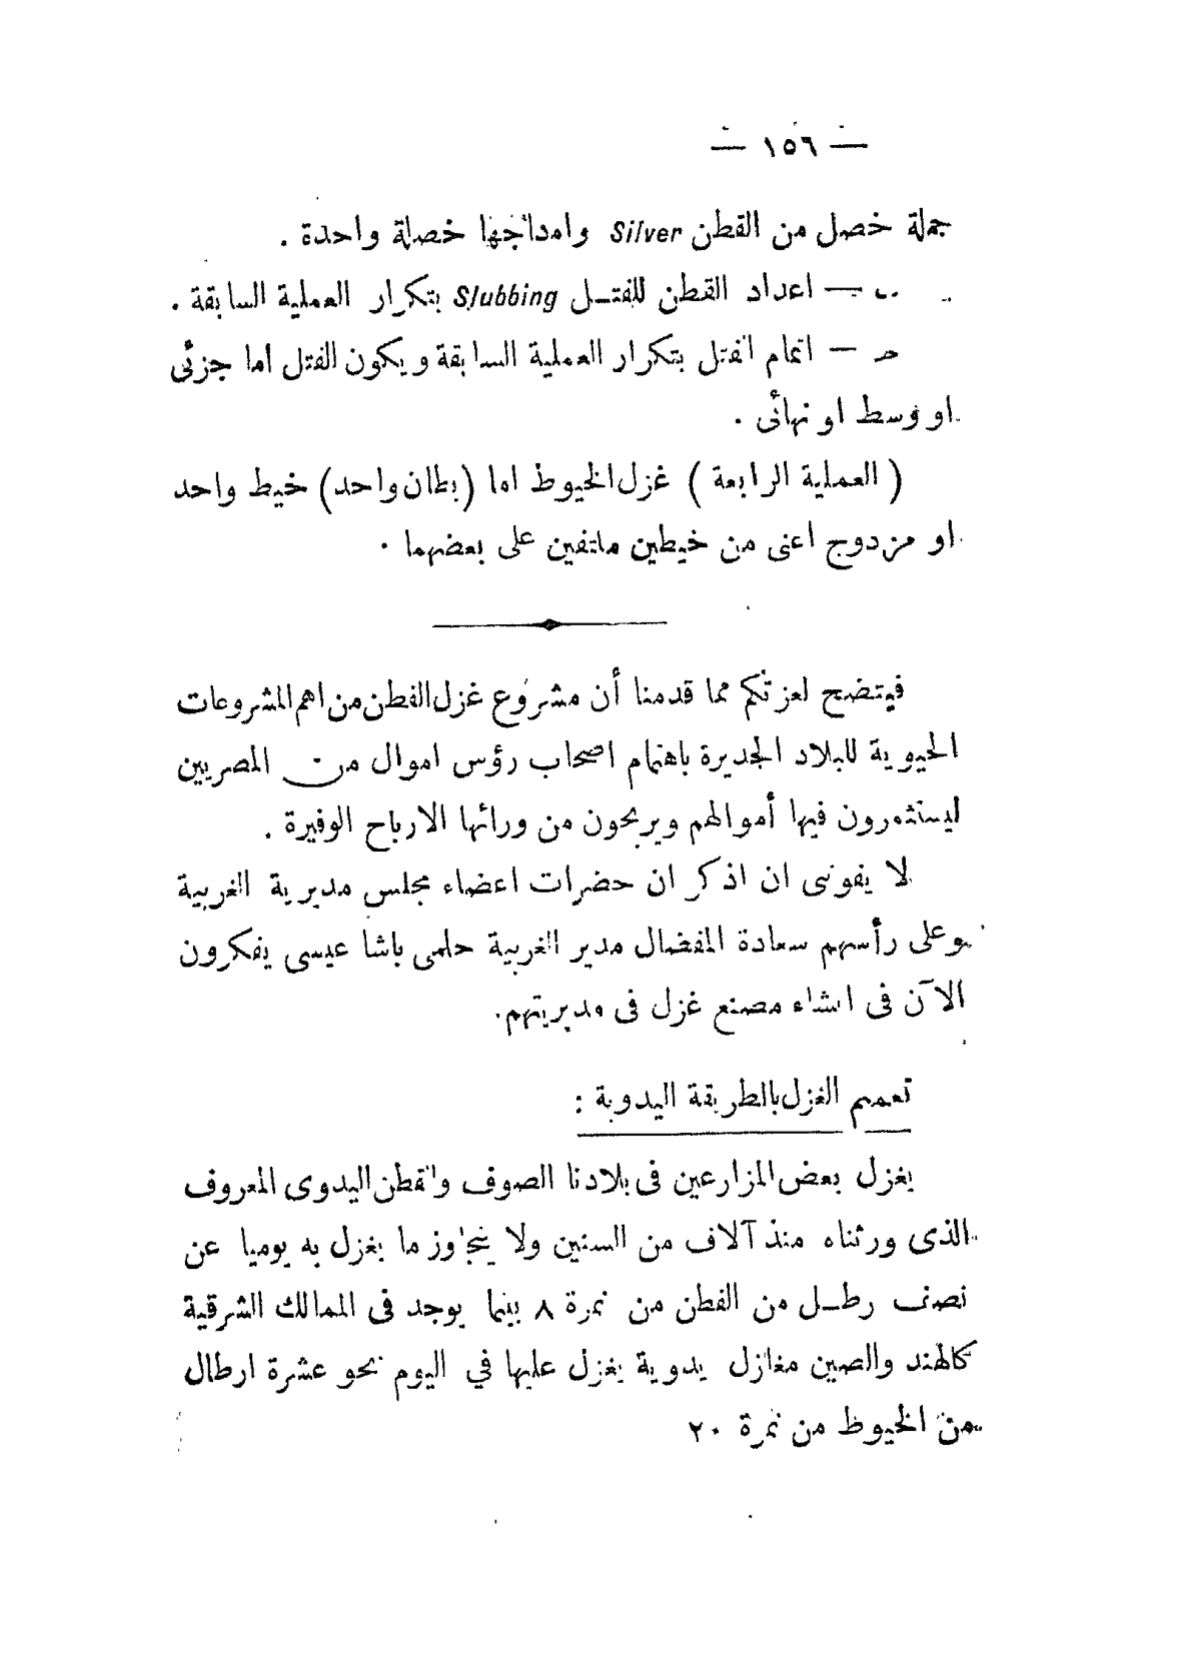 — ١٥٦ —
جملة خصل من القطن Silver وامداجها خصلة واحدة .
ب — اعداد القطن للفتـل Slubbing بتكرار العملية السابقة .
حـ — اتمام الفتل بتكرار العملية السابقة ويكون الفتل اما جزئى
او وسط او نهائى .
( العملية الرابعة ) غزل الخيوط اما (بطان واحد) خيط واحد
او مزدوج اعنى من خيطين ملتفين على بعضهما .
فيتضح لعزتكم مما قدمنا أن مشروع غزل القطن من اهم المشروعات
الحيوية للبلاد الجديرة باهتمام اصحاب رؤس اموال من المصريين
ليستثمرون فيها أموالهم ويربحون من ورائها الارباح الوفيرة .
لا يفوتنى ان اذكر ان حضرات اعضاء مجلس مديرية الغربية
وعلى رأسهم سعادة المفضال مدير الغربية حلمى باشا عيسى يفكرون
الآن فى انشاء مصنع غزل فى مديريتهم.
تعميم الغزل بالطريقة اليدوية :
يغزل بعض المزارعين فى بلادنا الصوف والقطن اليدوى المعروف
الذى ورثناه منذ آلاف من السنين ولا يتجاوز ما يغزل به يوميا عن
نصف رطـل من القطن من نمرة ٨ بينما يوجد فى الممالك الشرقية
كالهند والصين مغازل يدوية يغزل عليها في اليوم نحو عشرة ارطال
من الخيوظ من نمرة ٢٠